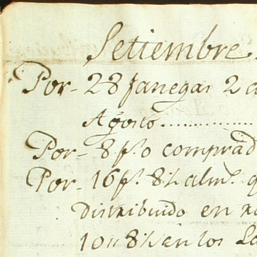 Setiembre
Por- 28 fanegas 2 a
Agosto..............
Por- 8 fs. o comprad
Por- 16 fs. 8½ alms. q
distribuido en
10 8½ en los